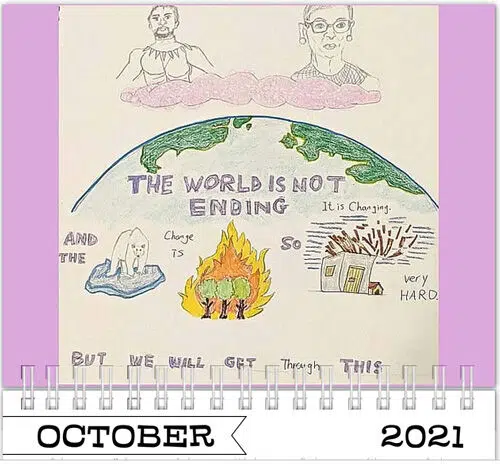 THE WORLD IS NOT
ENDING
It is Changing.
AND
THE
Change
IS
SO
very
HARD.
BUT WE WILL GET Through THIS
OCTOBER
2021